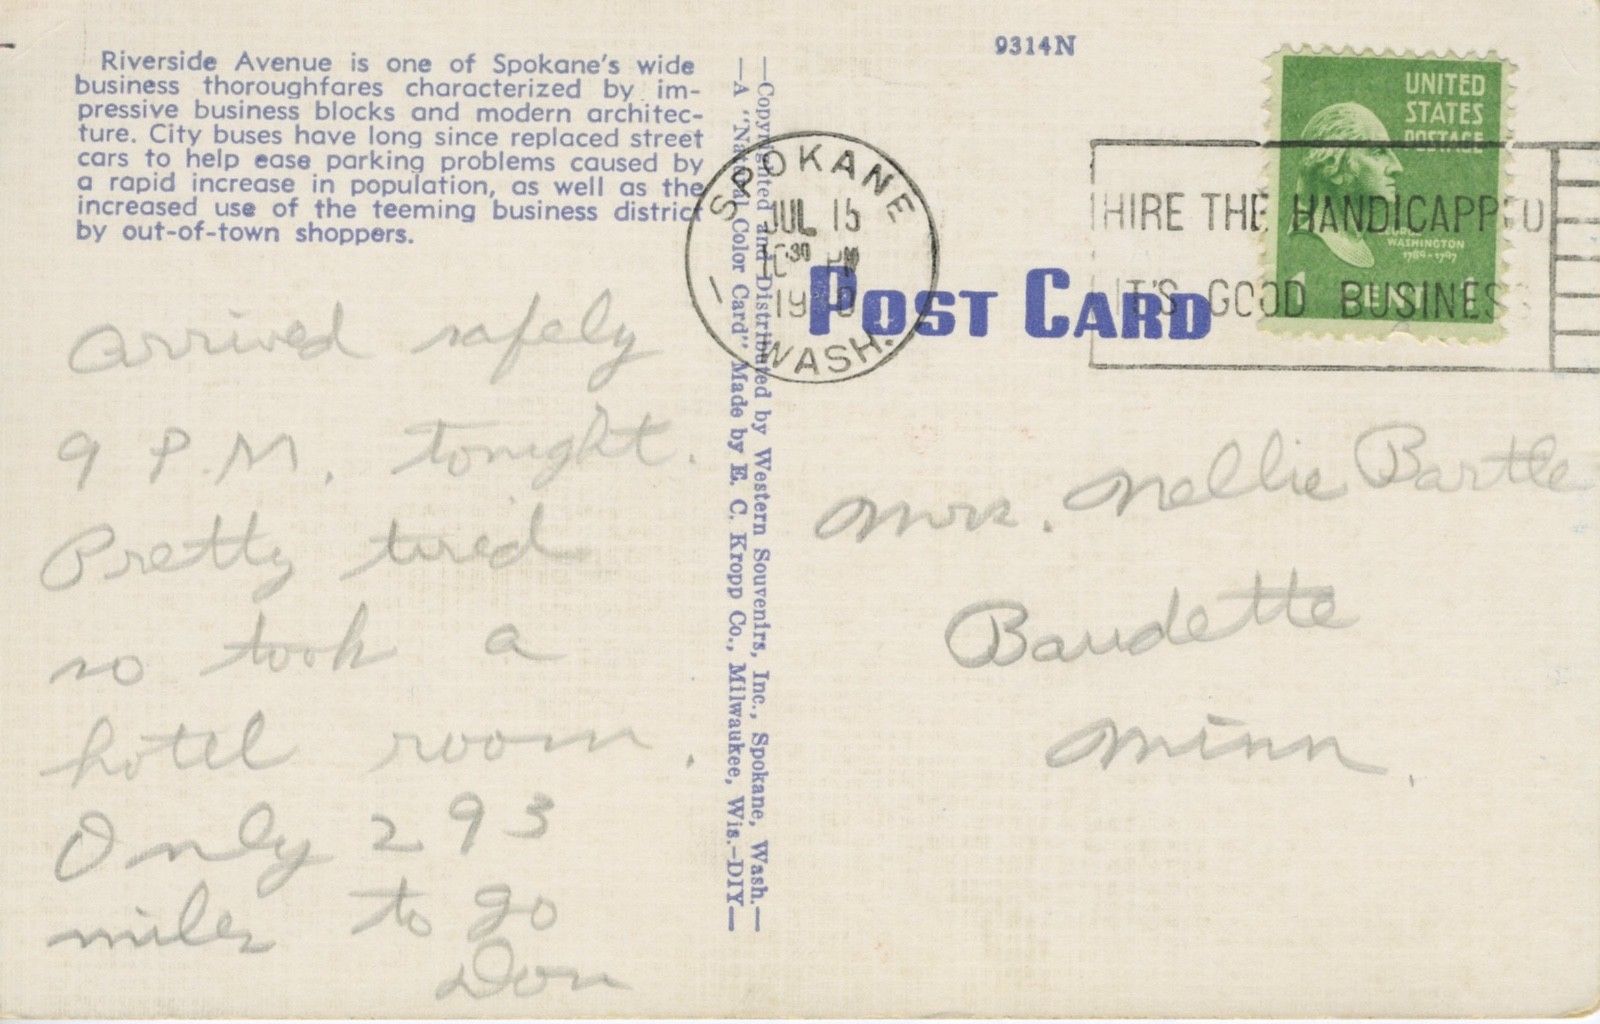 Riverside Avenue is one of Spokane's wide
business thoroughfares characterized by im-
pressive business blocks and modern architec-
ture. City buses have long since replaced street
cars to help ease parking problems caused by
a rapid increase in population, as well as the
increased use of the teeming business district
by out-of-town shoppers.
arrived safely
9 P.M. tonight.
Pretty tired
so took a
hotel room.
Only 293
miles to go
Don
—Copyrighted and Distributed by Western Souvenirs, Inc., Spokane, Wash.—
—A "Natural Color Card" Made by E. C. Kropp Co., Milwaukee, Wis.-DIY—
9314N
POST CARD
SPOKANE
JUL 15
30 PM
WASH.
HIRE THE HANDICAPPED
IT'S GOOD BUSINESS
UNITED
STATES
POSTAGE
GEORGE
WASHINGTON
1789-1797
1 CENT 1
Mrs. Nellie Bartle
Baudette
Minn.